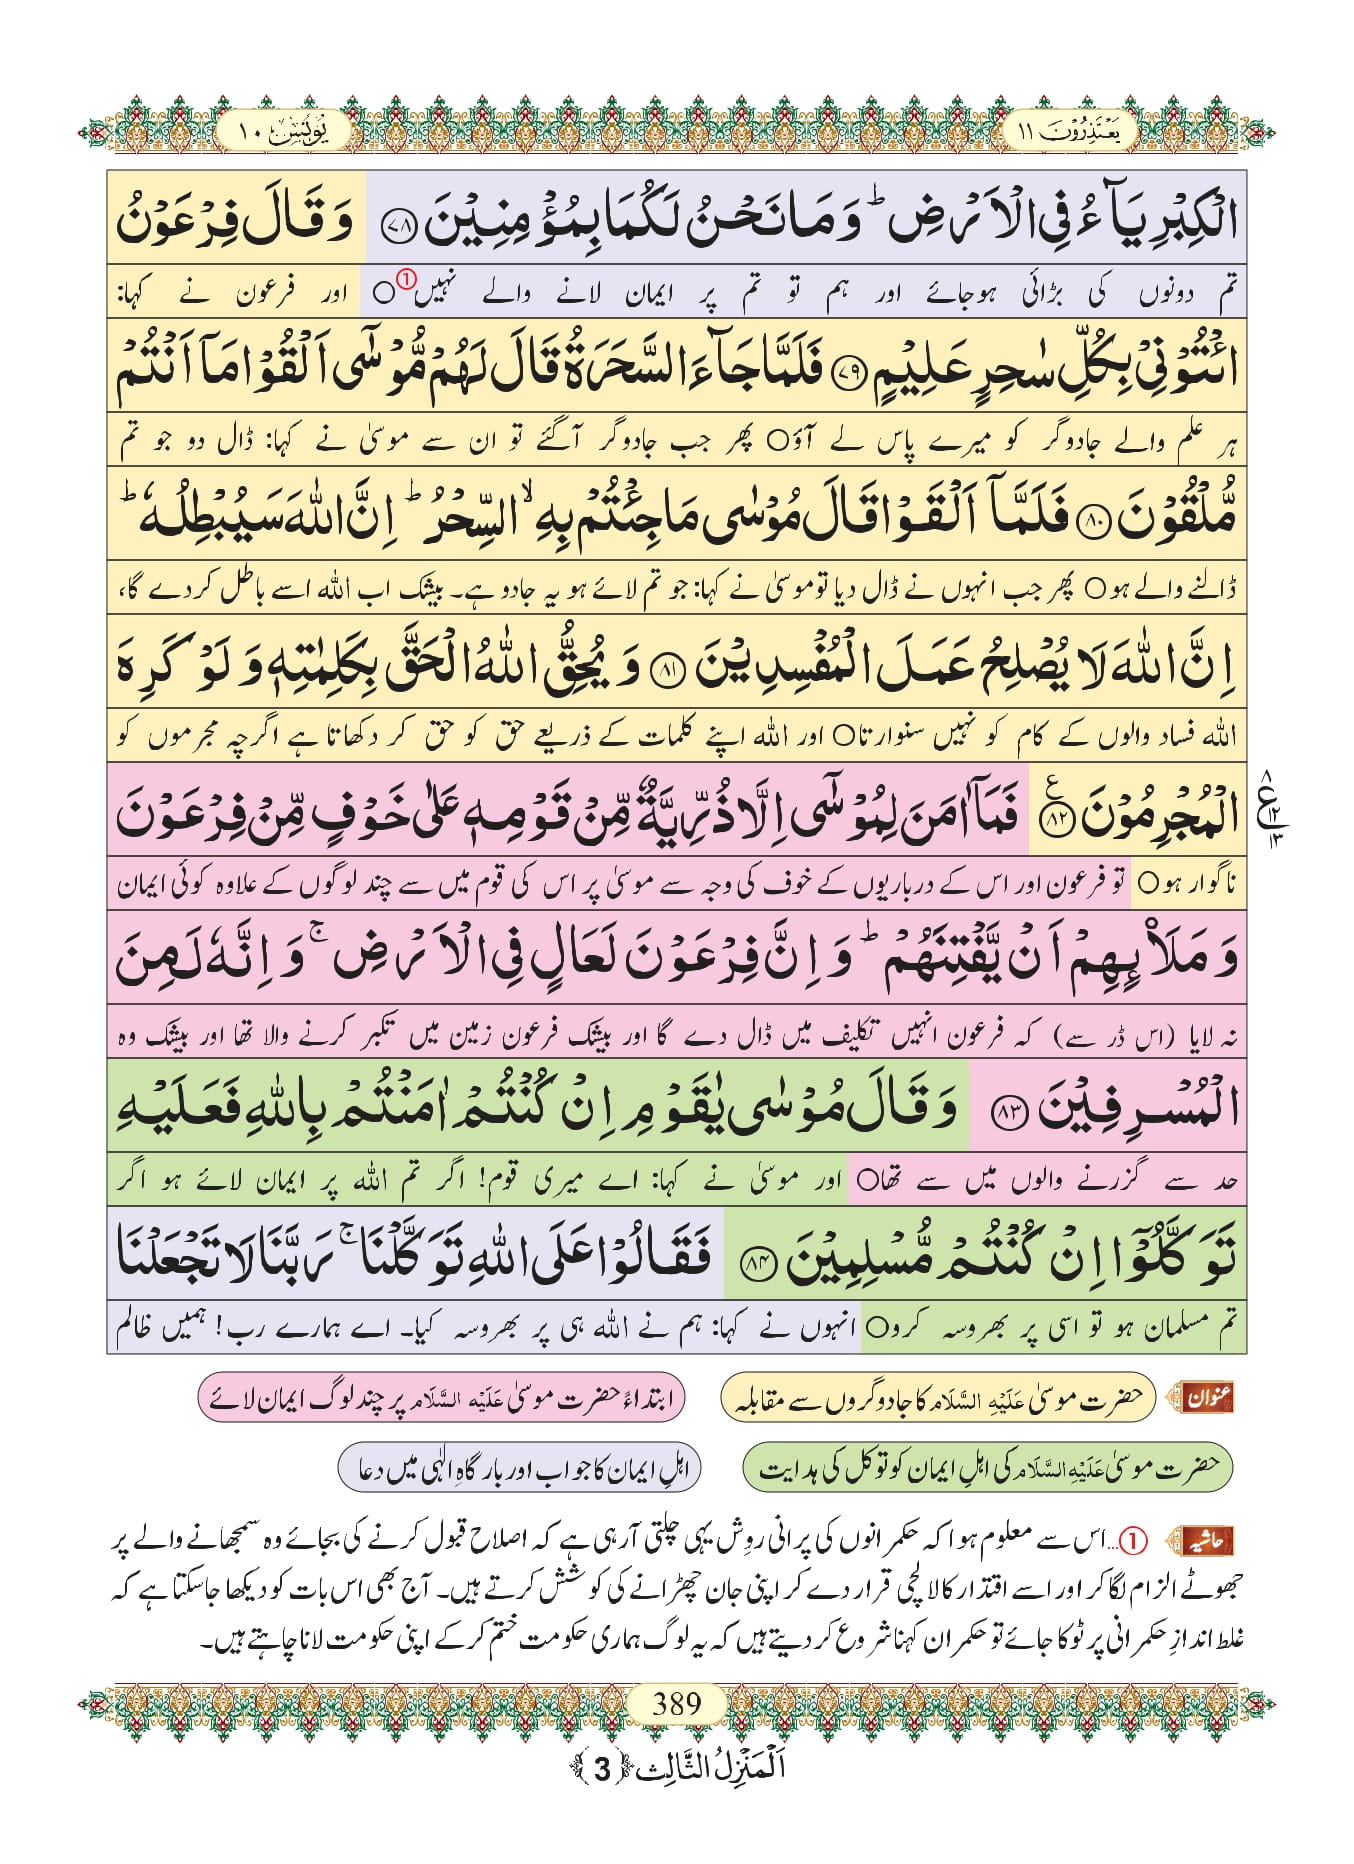 یَعْتَذِرُوْنَ ١١
یُوْنُس ١٠
الْكِبْرِیَآءُ فِی الْاَرْضِؕ وَ مَا نَحْنُ لَكُمَا بِمُؤْمِنِیْنَ ﴿۷۸﴾ وَ قَالَ فِرْعَوْنُ
تم دونوں کی بڑائی ہوجائے اور ہم تو تم پر ایمان لانے والے نہیں①○ اور فرعون نے کہا:
ائْتُوْنِیْ بِكُلِّ سٰحِرٍ عَلِیْمٍ ﴿۷۹﴾ فَلَمَّا جَآءَ السَّحَرَةُ قَالَ لَهُمْ مُّوْسٰۤى اَلْقُوْا مَاۤ اَنْتُمْ
ہر علم والے جادوگر کو میرے پاس لے آؤ○ پھر جب جادوگر آگئے تو ان سے موسیٰ نے کہا: ڈال دو جو تم
مُّلْقُوْنَ ﴿۸۰﴾ فَلَمَّاۤ اَلْقَوْا قَالَ مُوْسٰى مَا جِئْتُمْ بِهِۙ السِّحْرُؕ اِنَّ اللّٰهَ سَیُبْطِلُهٗؕ
ڈالنے والے ہو○ پھر جب انہوں نے ڈال دیا تو موسیٰ نے کہا: جو تم لائے ہو یہ جادو ہے۔ بیشک اب اللہ اسے باطل کردے گا،
اِنَّ اللّٰهَ لَا یُصْلِحُ عَمَلَ الْمُفْسِدِیْنَ ﴿۸۱﴾ وَ یُحِقُّ اللّٰهُ الْحَقَّ بِكَلِمٰتِهٖ وَ لَوْ كَرِهَ
اللہ فساد والوں کے کام کو نہیں سنوارتا○ اور اللہ اپنے کلمات کے ذریعے حق کو حق کر دکھاتا ہے اگرچہ مجرموں کو
الْمُجْرِمُوْنَ ﴿۸۲﴾ ع فَمَاۤ اٰمَنَ لِمُوْسٰۤى اِلَّا ذُرِّیَّةٌ مِّنْ قَوْمِهٖ عَلٰى خَوْفٍ مِّنْ فِرْعَوْنَ
۸ ع ۱۲ ۱۳
ناگوار ہو○ تو فرعون اور اس کے درباریوں کے خوف کی وجہ سے موسیٰ پر اس کی قوم میں سے چند لوگوں کے علاوہ کوئی ایمان
وَ مَلَاۡىٕهِمْ اَنْ یَّفْتِنَهُمْؕ وَ اِنَّ فِرْعَوْنَ لَعَالٍ فِی الْاَرْضِۚ وَ اِنَّهٗ لَمِنَ
نہ لایا (اس ڈر سے) کہ فرعون انہیں تکلیف میں ڈال دے گا اور بیشک فرعون زمین میں تکبر کرنے والا تھا اور بیشک وہ
الْمُسْرِفِیْنَ ﴿۸۳﴾ وَ قَالَ مُوْسٰى یٰقَوْمِ اِنْ كُنْتُمْ اٰمَنْتُمْ بِاللّٰهِ فَعَلَیْهِ
حد سے گزرنے والوں میں سے تھا○ اور موسیٰ نے کہا: اے میری قوم! اگر تم اللہ پر ایمان لائے ہو اگر
تَوَكَّلُوْۤا اِنْ كُنْتُمْ مُّسْلِمِیْنَ ﴿۸۴﴾ فَقَالُوْا عَلَى اللّٰهِ تَوَكَّلْنَاۚ رَبَّنَا لَا تَجْعَلْنَا
تم مسلمان ہو تو اسی پر بھروسہ کرو○ انہوں نے کہا: ہم نے اللہ ہی پر بھروسہ کیا۔ اے ہمارے رب! ہمیں ظالم
عنوان حضرت موسیٰ عَلَیْهِ السَّلَام کا جادوگروں سے مقابلہ ابتداءً حضرت موسیٰ عَلَیْهِ السَّلَام پر چند لوگ ایمان لائے
حضرت موسیٰ عَلَیْهِ السَّلَام کی اہلِ ایمان کو توکل کی ہدایت اہلِ ایمان کا جواب اور بارگاہِ الٰہی میں دعا
حاشیہ ①...اس سے معلوم ہوا کہ حکمرانوں کی پرانی روِش یہی چلتی آرہی ہے کہ اصلاح قبول کرنے کی بجائے وہ سمجھانے والے پر
جھوٹے الزام لگا کر اور اسے اقتدار کا لالچی قرار دے کر اپنی جان چھڑانے کی کوشش کرتے ہیں۔ آج بھی اس بات کو دیکھا جاسکتا ہے کہ
غلط اندازِ حکمرانی پر ٹوکا جائے تو حکمران کہنا شروع کردیتے ہیں کہ یہ لوگ ہماری حکومت ختم کرکے اپنی حکومت لانا چاہتے ہیں۔
389
اَلْمَنْزِلُ الثَّالِث ﴿3﴾